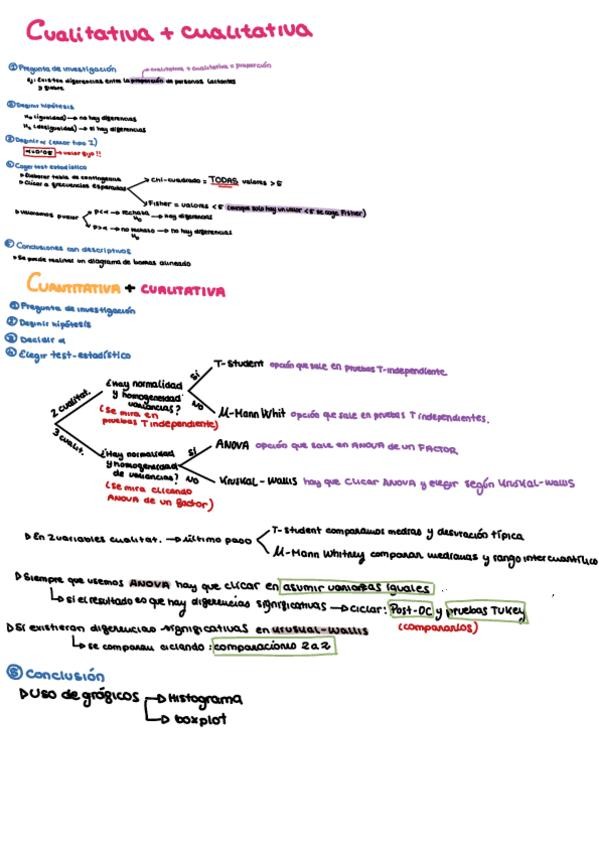 Cualitativa + cualitativa
① Pregunta de investigación → cualitativa + cualitativa = proporción
Ej: Existen diferencias entre la proporción de personas lactantes
y fiebre
② Definir hipótesis
H₀ (igualdad) → no hay diferencias
(desigualdad) → si hay diferencias
③ Definir α (error tipo I)
α=0'05 → valor fijo!!
④ Coger test estadístico
▷ Elaborar tabla de contingencia
▷ Clicar a frecuencias esperadas
Chi-cuadrado = TODAS valores > 5
Fisher = valores < 5 (aunque solo hay un valor < 5 se coge Fisher)
▷ Valoramos pvalor
p<α → rechazo H₀ → hay diferencias
p>α → no rechazo H₀ → no hay diferencias
⑤ Conclusiones con descriptivos
▷ Se puede realizar un diagrama de barras alineado
CUANTITATIVA + CUALITATIVA
① Pregunta de investigación
② Definir hipótesis
③ Decidir α
④ Elegir test-estadístico
2 cualitat.
¿Hay normalidad y homogeneidad varianzas?
(Se mira en pruebas T independiente)
SÍ
T-Student opción que sale en pruebas T-independiente
NO
U-Mann Whit opción que sale en pruebas T independientes.
3 cualit.
¿Hay normalidad y homogeneidad de varianzas?
(Se mira clicando ANOVA de un factor)
SÍ
ANOVA opción que sale en ANOVA de un FACTOR
NO
Kruskal-Wallis hay que clicar ANOVA y elegir según Kruskal-Wallis
▷ En 2 variables cualitat. → último paso
T-Student comparamos medias y desviación típica
U-Mann Whitney comparan medianas y rango intercuantílico
▷ Siempre que usemos ANOVA hay que clicar en asumir varianzas iguales
↳ si el resultado es que hay diferencias significativas → clicar: Post-OC y pruebas TUKey
(compararlos)
▷ Si existieran diferencias significativas en Kruskal-Wallis
↳ se comparan clicando: comparaciones 2a2
⑤ Conclusión
▷ Uso de gráficos
Histograma
boxplot